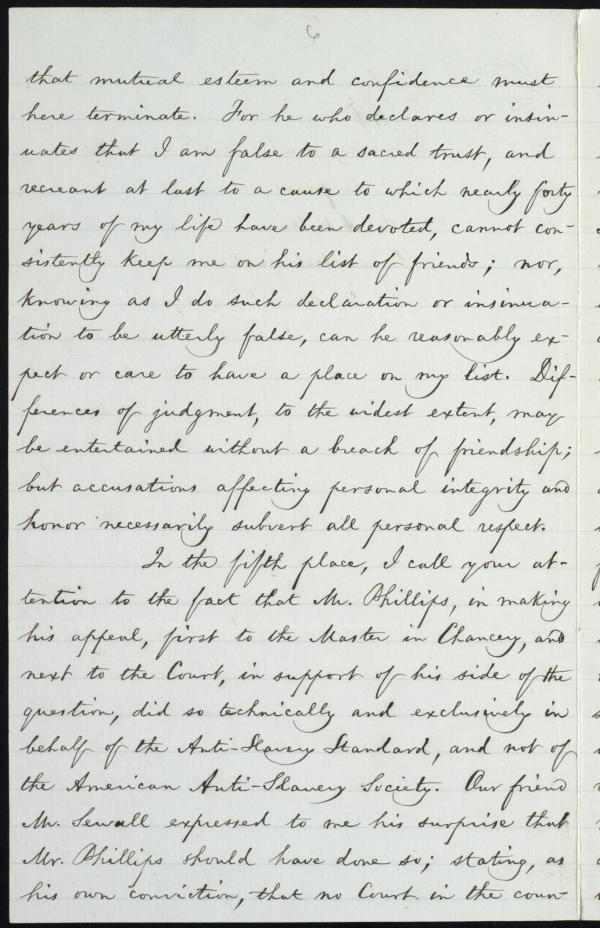 6
that mutual esteem and confidence must
here terminate. For he who declares or insin-
uates that I am false to a sacred trust, and
recreant at last to a cause to which nearly forty
years of my life have been devoted, cannot con-
sistently keep me on his list of friends; nor,
knowing as I do such declaration or insinua-
tion to be utterly false, can he reasonably ex-
pect or care to have a place on my list. Dif-
ferences of judgment, to the widest extent, may
be entertained without a breach of friendship;
but accusations affecting personal integrity and
honor necessarily subvert all personal respect.
In the fifth place, I call your at-
tention to the fact that Mr. Phillips, in making
his appeal, first to the Master in Chancery, and
next to the Court, in support of his side of the
question, did so technically and exclusively in
behalf of the Anti-Slavery Standard, and not of
the American Anti-Slavery Society. Our friend
Mr. Sewall expressed to me his surprise that
Mr. Phillips should have done so; stating, as
his own conviction, that no Court in the coun-